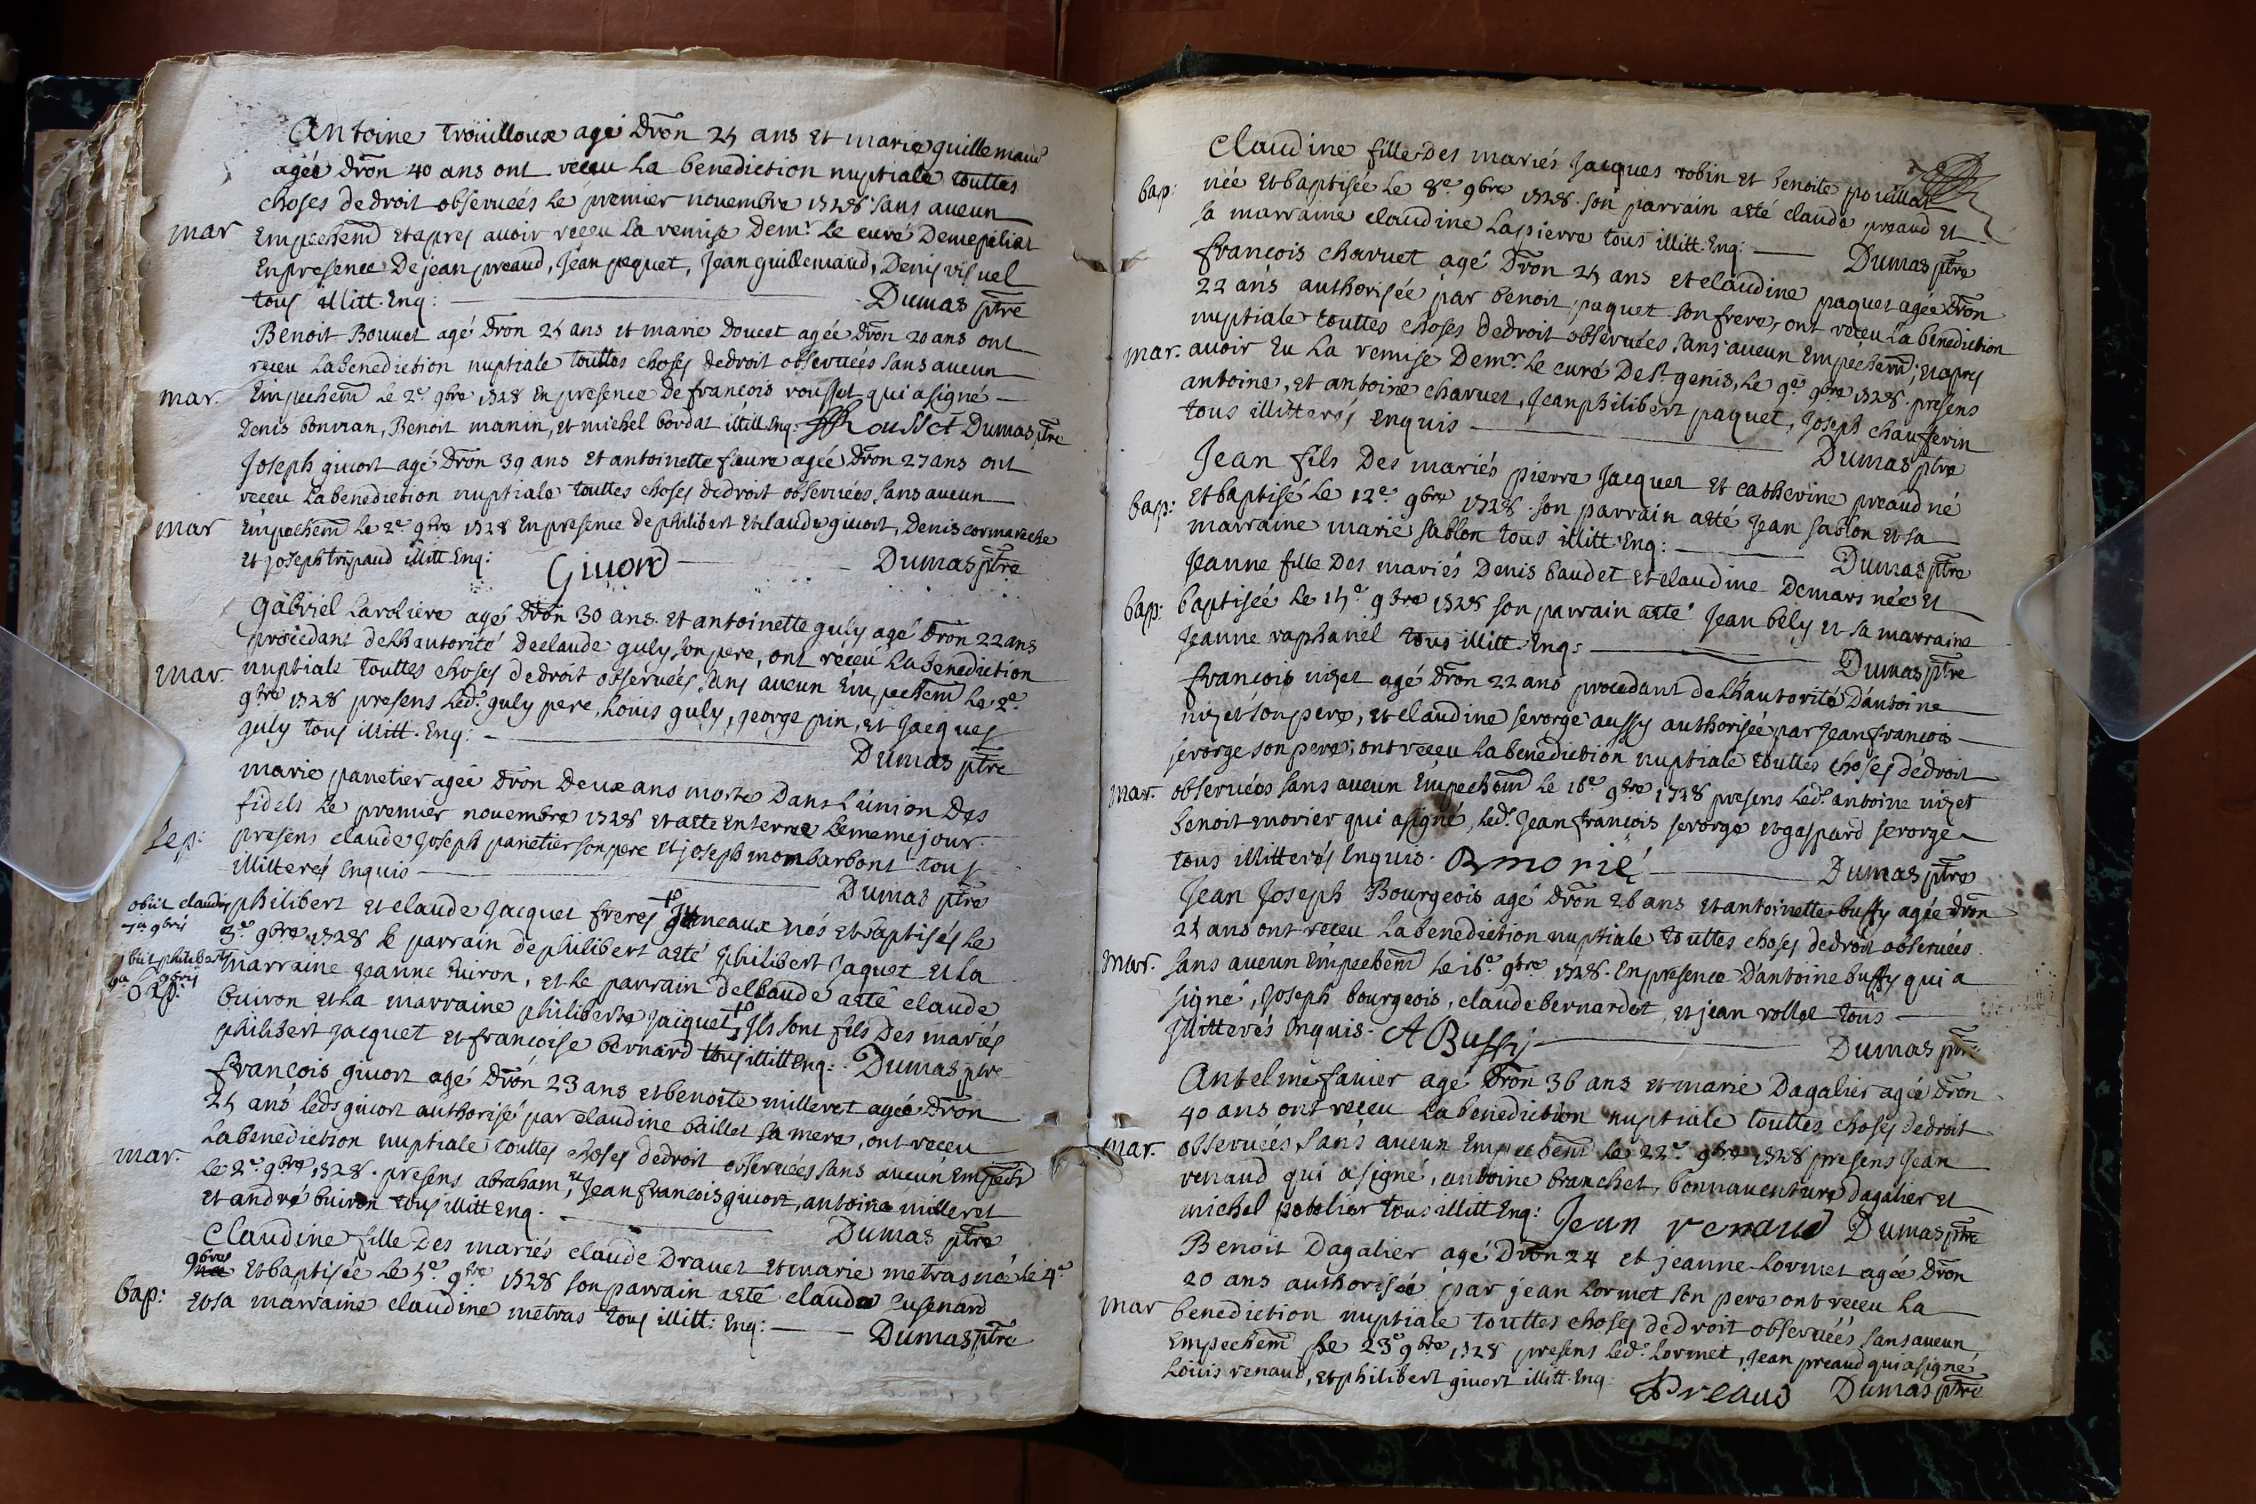 Antoine Trouilloux agé dron 25 ans et marie guillemaud
agée dron 40 ans ont receu la benediction nuptiale touttes
choses de droit observeés le premier novembre 1728 sans aucun
mar
Empechem et apres avoir receu la remise de mr. le curé de
En presence de jean preaud, jean pequet, jean guillemaud, Denis visuel
tous illitt. Enq: Dumas ptre
Benoit Bouvet agé dron 25 ans et marie doucet agée dron 20 ans ont
receu la benediction nuptiale touttes choses de droit observeés sans aucun
mar.
Empechem le 2e. 9bre 1728 En presence de francois rousset qui a signé
Denis bonnan, Benoit manin, et michel bordat illitt Enq: Rousset Dumas ptre
Joseph givort agé dron 39 ans et antoinette fleure agée dron 27 ans ont
receu la benediction nuptiale touttes choses de droit observeés sans aucun
mar
Empechem le 2e 9bre 1728 En presence de philibert et claude givort, Denis cormareche
et joseph tripaud illitt Enq: Givord Dumas ptre
Gabriel Laroliere agé dron 30 ans et antoinette guly agé dron 22 ans
procedant de l'hautorité de claude guly son pere, ont receu la benediction
mar
nuptiale touttes choses de droit observeés sans aucun Empechem le 2e.
9bre 1728 presens led. guly pere, Louis guly, george pin, et jacques
guly tous illitt. Enq: Dumas ptre
marie panetier agée dron deux ans morte dans l'union des
fidels le premier novembre 1728 et a eté Enterreé le meme jour
sep:
presens claude joseph panetier son pere et joseph mombarbont tous
illitterés Enquis Dumas ptre
obiit claudius
7a 9bris
philibert et claude jacquet freres jumeaux nés et baptisés le
3e. 9bre 1728 le parrain de philibert a eté philibert jaquet et la
obiit philibertus
9a 9bris
bap:
marraine jeanne buiron, et le parrain de claude a eté claude
buiron et la marraine philiberte jacquet, ils sont fils des mariés
philibert jacquet et francoise bernard tous illitt Enq: Dumas ptre
francois givort agé dron 23 ans et benoite milleret agée dron
25 ans leds givort authorisé par claudine baillet sa mere, ont receu
la benediction nuptiale touttes choses de droit observeés sans aucun Empech
mar.
le 2e. 9bre 1728. presens abraham, et jean francois givort, antoine milleret
et andré buiron tous illitt Enq. Dumas ptre
Claudine fille des mariés claude Dravet et marie metras né le 4e
9bre et baptisée le 5e. 9bre 1728 son parrain a eté claude lusenard
bap:
et sa marraine claudine metras tous illitt: Enq: Dumas ptre
Claudine fille des mariés jacques robin et benoite pouillat
bap:
née et baptisée le 8e. 9bre 1728. son parrain a eté claude preaud et
sa marraine claudine lapierre tous illitt. Enq: Dumas ptre
francois charvet agé dron 25 ans et claudine paquet agée dron
22 ans authorisée par benoit paquet son frere, ont receu la benediction
nuptiale touttes choses de droit observeés sans aucun Empechem, et apres
mar.
avoir Eu la remise de mr. le curé de st genis, le 9e 9bre 1728. presens
antoine, et antoine charvet, jean philibert paquet, joseph chaufferin
tous illitterés Enquis Dumas ptre
Jean fils des mariés pierre jacquet et catherine preaud né
bap:
et baptisé le 12e 9bre 1728. son parrain a eté jean sablon et sa
marraine marie sablon tous illitt Enq: Dumas ptre
Jeanne fille des mariés Denis baudet et claudine Demars née et
bap:
baptisée le 15e 9bre 1728 son parrain a eté jean bely et sa marraine
jeanne raphaniel tous illitt. Enq: Dumas ptre
francois nizet agé dron 22 ans procedant de l'hautorité d'antoine
nizet son pere, et claudine serorge aussy authorisée par jean francois
serorge son pere, ont receu la benediction nuptiale touttes choses de droit
mar.
observeés sans aucun Empechem le 16e 9bre 1728 presens led. antoine nizet
benoit morier qui a signé, led. jean francois serorge et gaspard serorge
tous illitterés Enquis. B morié Dumas ptre
Jean Joseph Bourgeois agé dron 26 ans et antoinette buffy agée dron
25 ans ont receu la benediction nuptiale touttes choses de droit observeés
mar.
sans aucun Empechem le 16e. 9bre 1728. En presence d'antoine buffy qui a
signé, joseph bourgeois, claude bernardet, et jean rollet tous
illitterés Enquis. A Buffy Dumas ptre
Antelme favier agé dron 36 ans et marie Dagalier agée dron
40 ans ont receu la benediction nuptiale touttes choses de droit
mar.
observeés sans aucun Empechem le 22e. 9bre 1728 presens jean
renaud qui a signé, antoine branchet, bonnaventure dagalier et
michel potelier tous illitt Enq: Jean renaud Dumas ptre
Benoit Dagalier agé dron 24 et jeanne Lormet agée dron
20 ans authorisée par jean Lormet son pere ont receu la
mar
benediction nuptiale touttes choses de droit observeés sans aucun
Empechem le 23e 9bre 1728 presens led. Lormet, jean preaud qui a signé
Louis renaud, et philibert givort illitt. Enq. Preaud Dumas ptre